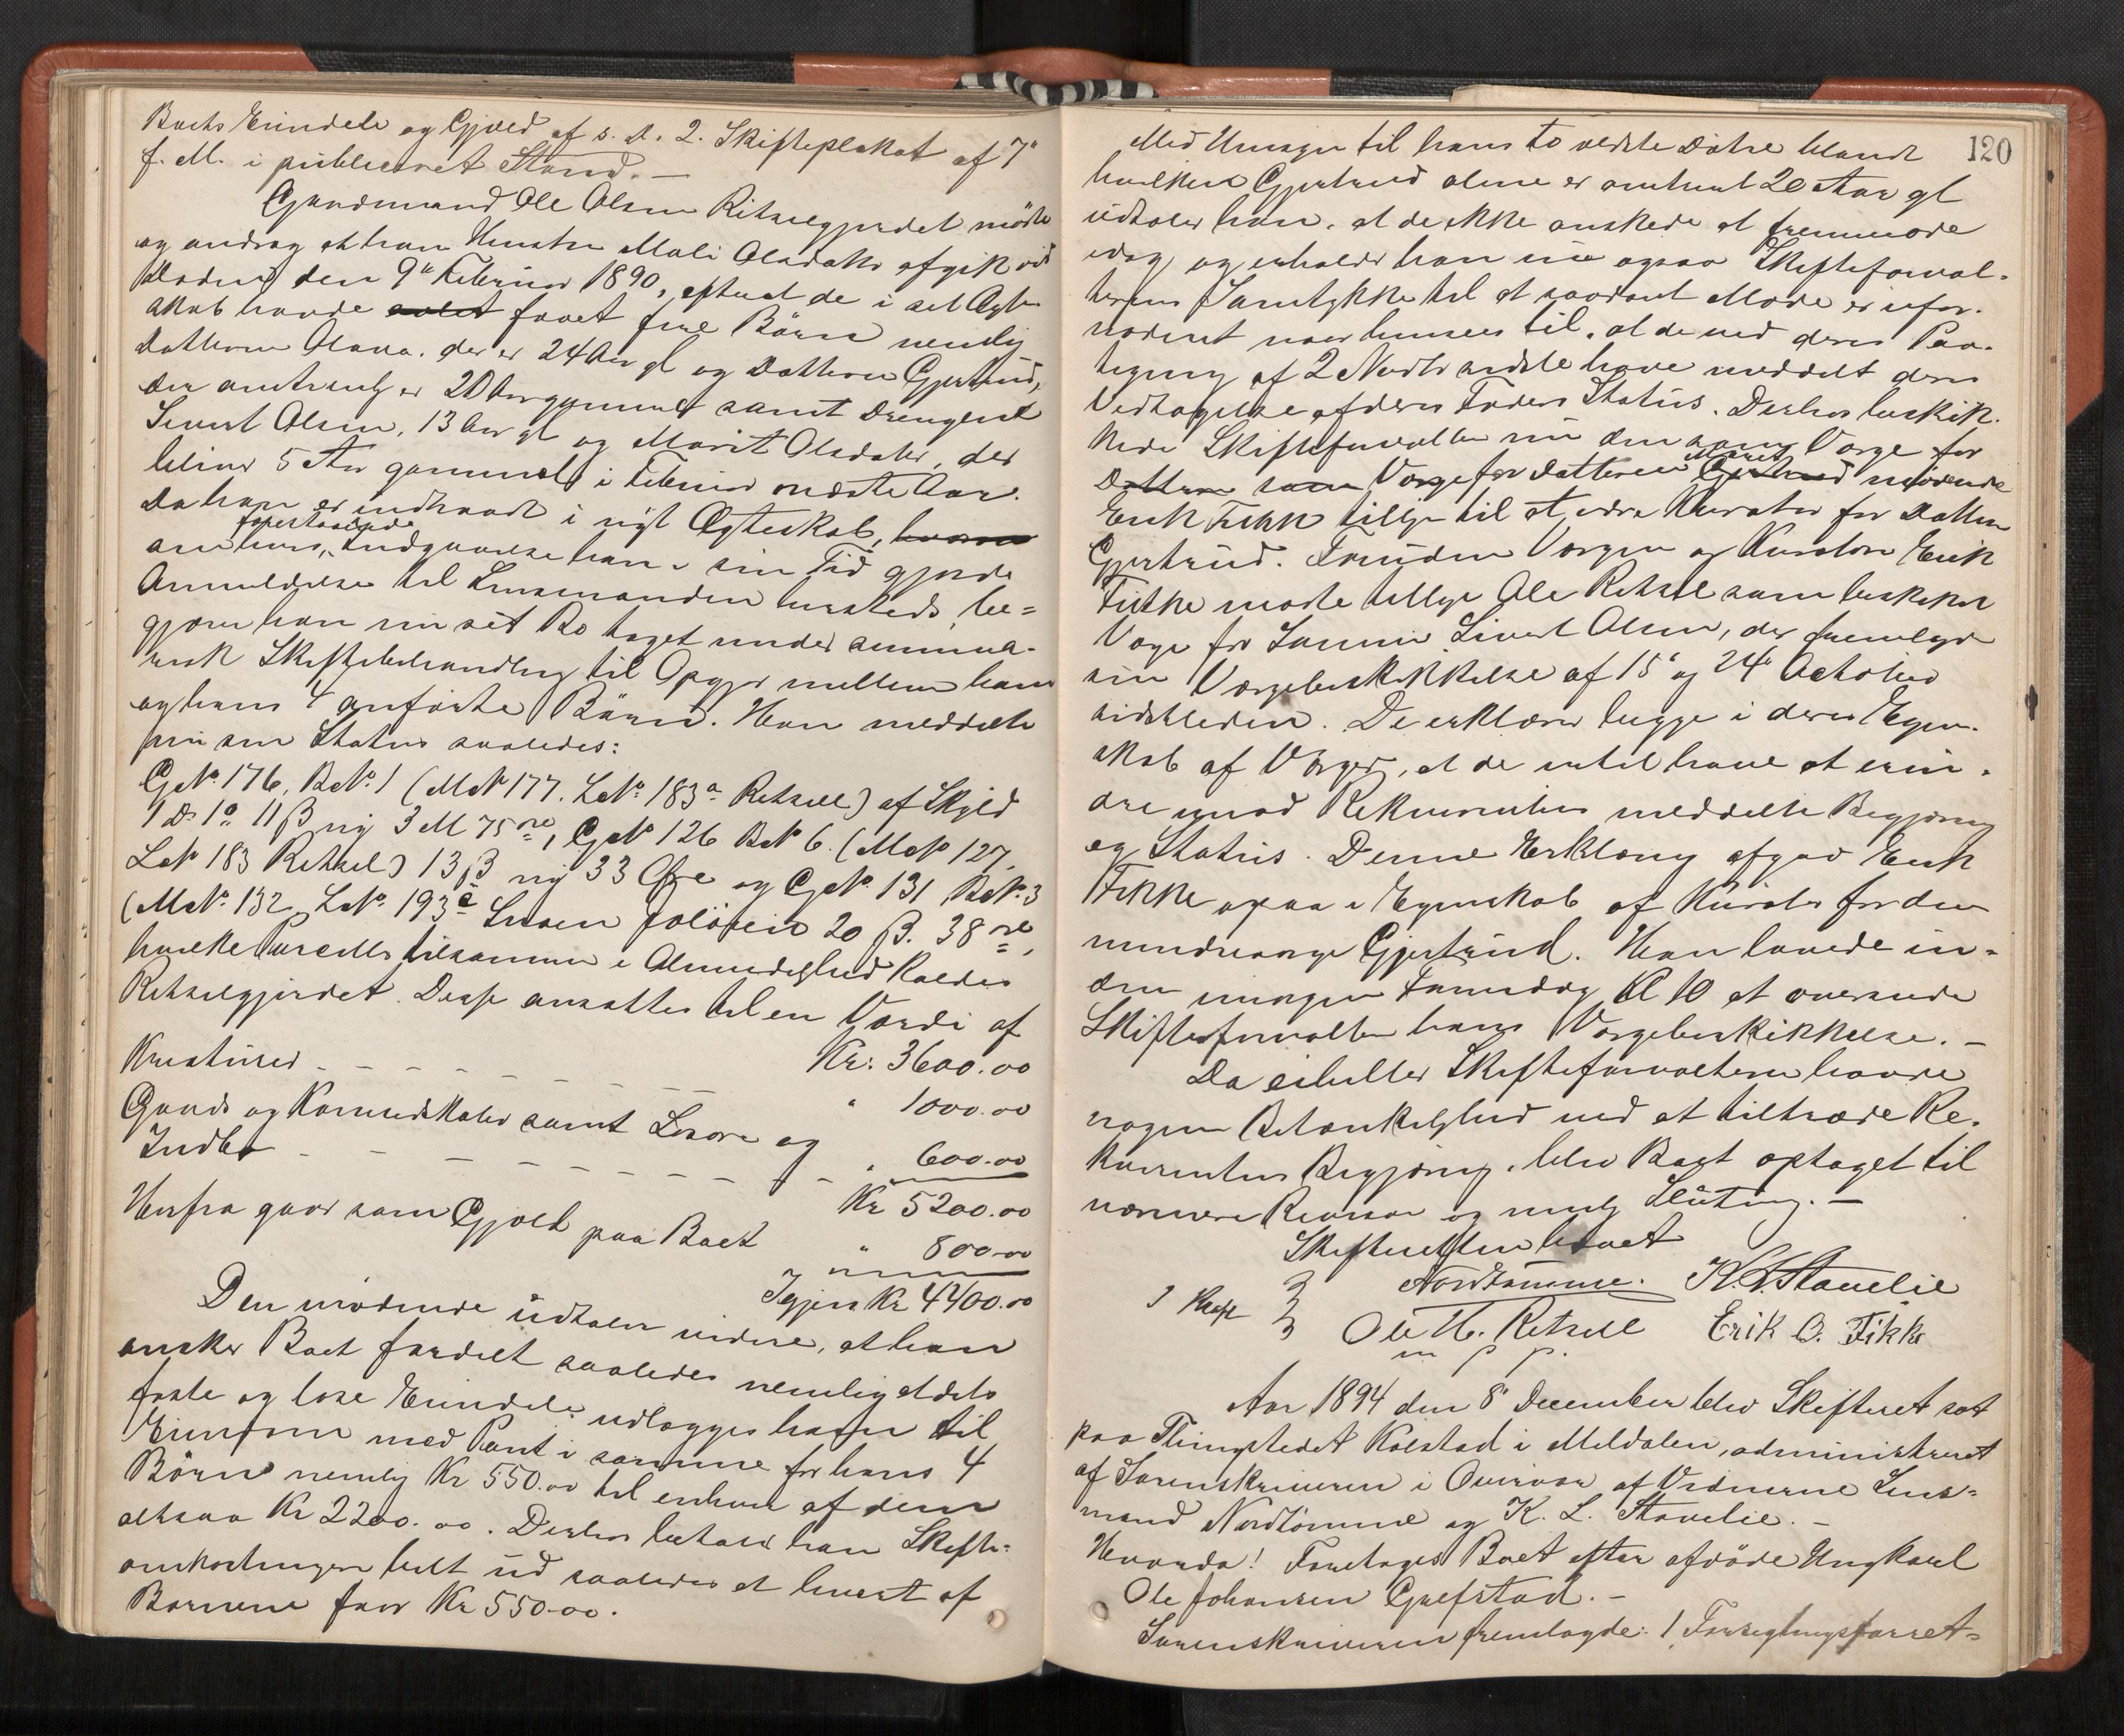 Boets Eiendele og Gjæld af s. D. 2. Skifteplakat af 7"
f. M. i publiceret Stand. –
Gaardmand Ole Olsen Ritselgjerdet mödte
og androg at hans Hustru Mali Olsdatter afgik ved
Døden den 9" Februar 1890, efterat de i sit Ægte-
skab havde avlet faaet fire Börn nemlig
Datteren Olava, der er 24 Aar gl og Datteren Gjertrud,
der omtrent er 20 Aar gammel samt Drengene
Sivert Olsen, 13 Aar gl og Marit Olsdatter, der
bliver 5 Aar gammel i Februar næste Aar.
Da han er indtraadt i nyt Ægteskab,
om hvis forestaaende Indgaaelse han i sin Tid gjorde
Anmeldelse til Lensmanden hersteds, be=
gjærer han nu sit Bo taget under summa-
risk Skiftebehandling til Opgjør mellem ham
og hans 4 anförte Börn. Han meddelte
nu sin Status saaledes:
G.No. 176, B.No. 1 (M.No 177. L.No. 183a Ritsell) af Skyld
1 D. 1 o. 11 β ny 3 M 75 øre, G.No 126 B.No 6. (M.No 127,
L.No 183 Ritsel) 13 β ny 33 Øre og G.No. 131 B.No. 3
(M.No. 132 L.No. 193 20 β. 38 øre,
hvilke Parceller tilsammen i Almindelighed kaldes
Ritselgjerdet. Disse ansattes til en Værdi af
Kr: 3600.00
Kreaturer - - - - - - - - " 1000.00
Gaards og Kjøreredskaber samt Løsøre og
Indbo - - - - - - - - - " 600.00
Kr 5200.00
Herfra gaar som Gjæld paa Boet " 800.00
Igjen Kr 4400.00
Den mødende udtaler videre, at han
ønsker Boet fordelt saaledes nemlig at dets
faste og løse Eiendele udlægges ham til
Eiendom med Pant i samme for hans 4
Börn nemlig Kr 550.00 til enhver af dem
altsaa Kr 2200.00. Derhos betaler han Skifte-
omkostningerne helt ud saaledes at hvert af
Børnene faar Kr 550.00.
120
Med Hensyn til hans to ældste Døtre blandt
hvilken Gjertrud alene er omtrent 20 Aar gl
udtaler han, at de ikke ønskede at fremmøde
idag, og erholder han nu ogsaa Skifteforval-
terens Samtykke til at saadant Møde er ufor-
nødent naar henseer til, at de med deres Paa-
tegning af 2 Novbr sidste have meddelt deres
Vedtagelse af deres Faders Status. Derhos beskik-
kede Skifteforvalteren nu den som Værge for
Datteren som Værge for Datteren Marit Gjertrud mødende
Erik Fikke tillige til at være Kurator for Datteren
Gjertrud. Foruden Værgen og Kurator Erik
Fikke mødte tillige Ole Ritsell som beskikket
Værge for Sønnen Sivert Olsen, der fremlagde
sin Værgebeskikkelse af 15" og 24" October
sidstleden. De erklærer begge i deres Egen-
skab af Værger, at de intet have at erin-
dre imod Rekvirentens meddelte Begjæring
og Status. Denne Erklæring afgav Erik
Fikke ogsaa i Egenskab af Kurator for den
mindreaarige Gjertrud. Han lovede in-
den imorgen Formiddag Kl 10 at oversende
Skifteforvalteren hans Værgebeskikkelse. –
Da eiheller Skifteforvalteren havde
nogen Betænkelighed ved at tiltræde Re-
kvirentens Begjæring, blev Boet optaget til
nærmere Revision og mulig Slutning. –
Skifteretten hævet
Nordtømme. K. L. Stavelie
Ole H. Ritsell Erik O. Fikke
m p p.
Aar 1894 den 8" December blev Skifteret sat
paa Thingstedet Kalstad i Meldalen, administreret
af Sorenskriveren i Overvær af Vidnerne Lens=
mand Nordtømme og K. L. Stavelie. –
Hvorda! Foretoges Boet efter afdöde Ungkarl
Ole Johansen Grefstad. –
Sorenskriveren fremlagde: 1, Forseglingsforret=